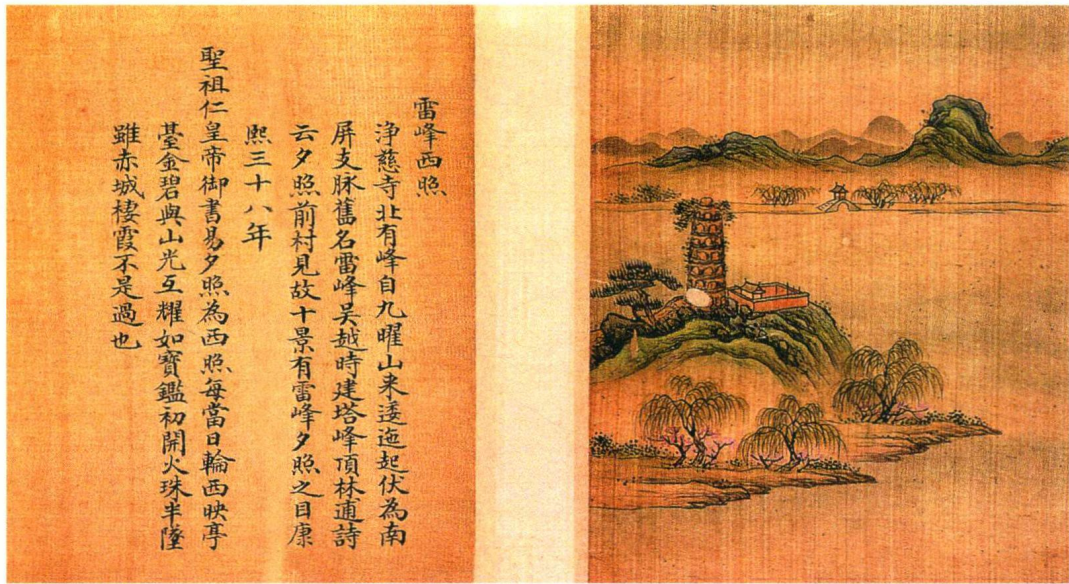 雷峰西照
淨慈寺北有峰自九曜山来逶迤起伏為南
屏支脉舊名雷峰吳越時建塔峰頂林逋詩
云夕照前村見故十景有雷峰夕照之目康
熙三十八年
聖祖仁皇帝御書易夕照為西照每當日輪西映亭
臺金碧與山光互耀如寶鑑初開火珠半墜
雖赤城棲霞不是過也